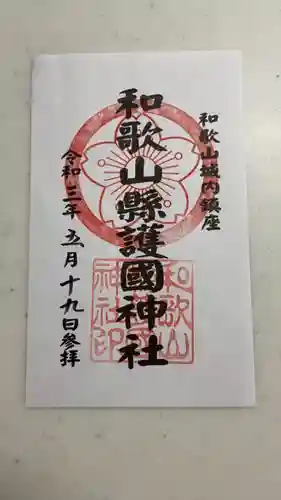 和歌山城内鎮座
和歌山縣護國神社
令和三年五月十九日参拝